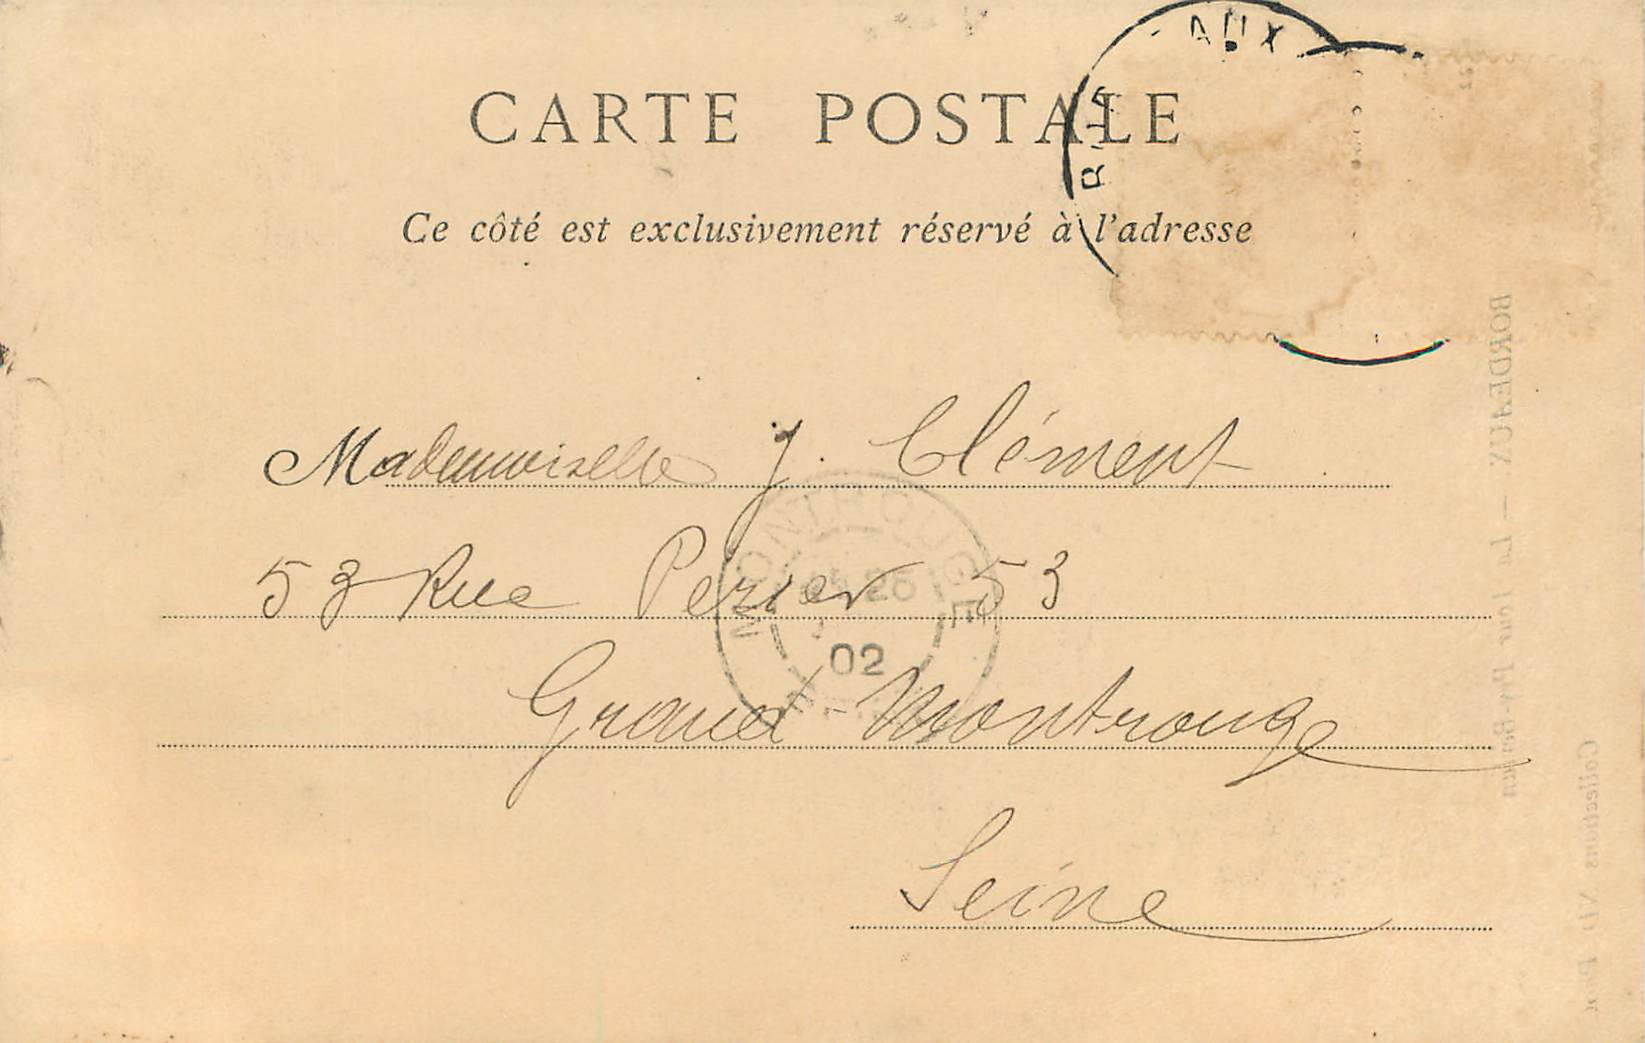 CARTE POSTALE
Ce côté est exclusivement réservé à l'adresse
Mademoiselle J. Clément
53 Rue Perier 53
Grand-Montrouge
Seine
MONTROUGE
02
BORDEAUX - La Tour Pey-Berlan
Collections ND Phot